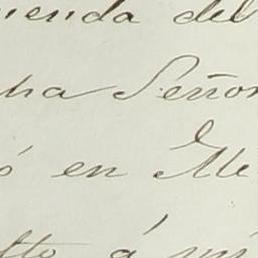 menda del
ha Señor
ó en Me
lto á mi